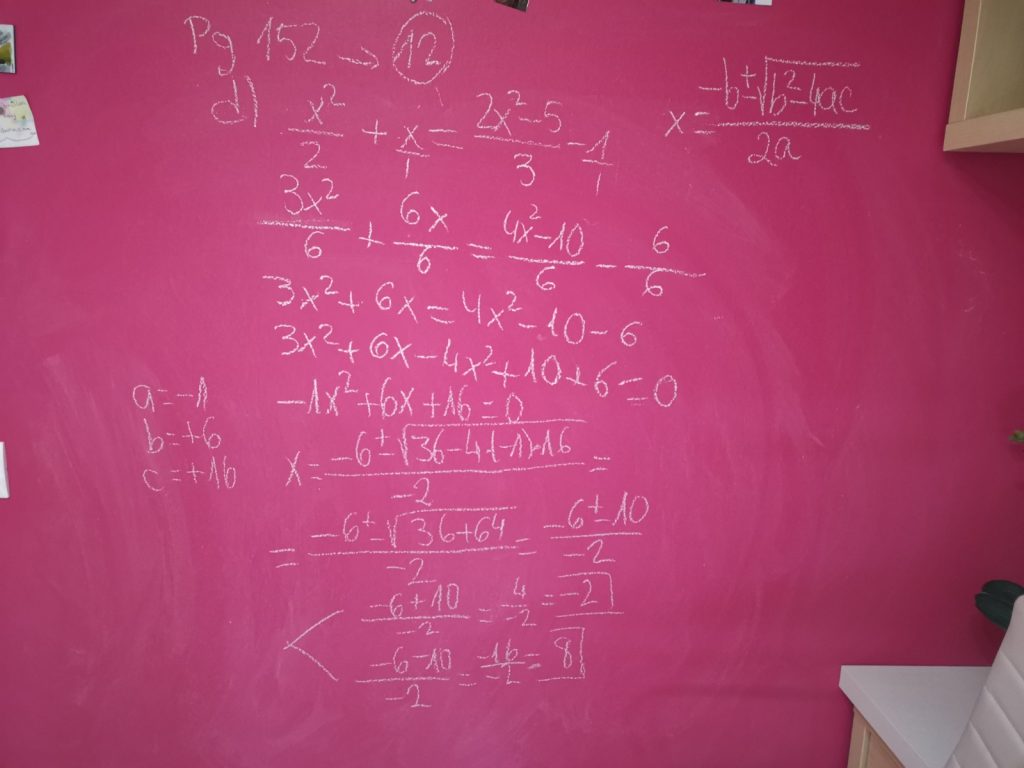 Pg 152 → 12
d) x²/2 + x/1 = (2x²-5)/3 - 1/1
x = (-b±√(b²-4ac))/2a
3x²/6 + 6x/6 = (4x²-10)/6 - 6/6
3x²+6x=4x²-10-6
3x²+6x-4x²+10+6=0
-1x²+6x+16=0
a=-1
b=+6
c=+16
x = (-6±√(36-4·(-1)·16))/-2 =
= (-6±√(36+64))/-2 = (-6±10)/-2
(-6+10)/-2 = 4/-2 = -2
(-6-10)/-2 = -16/-2 = 8